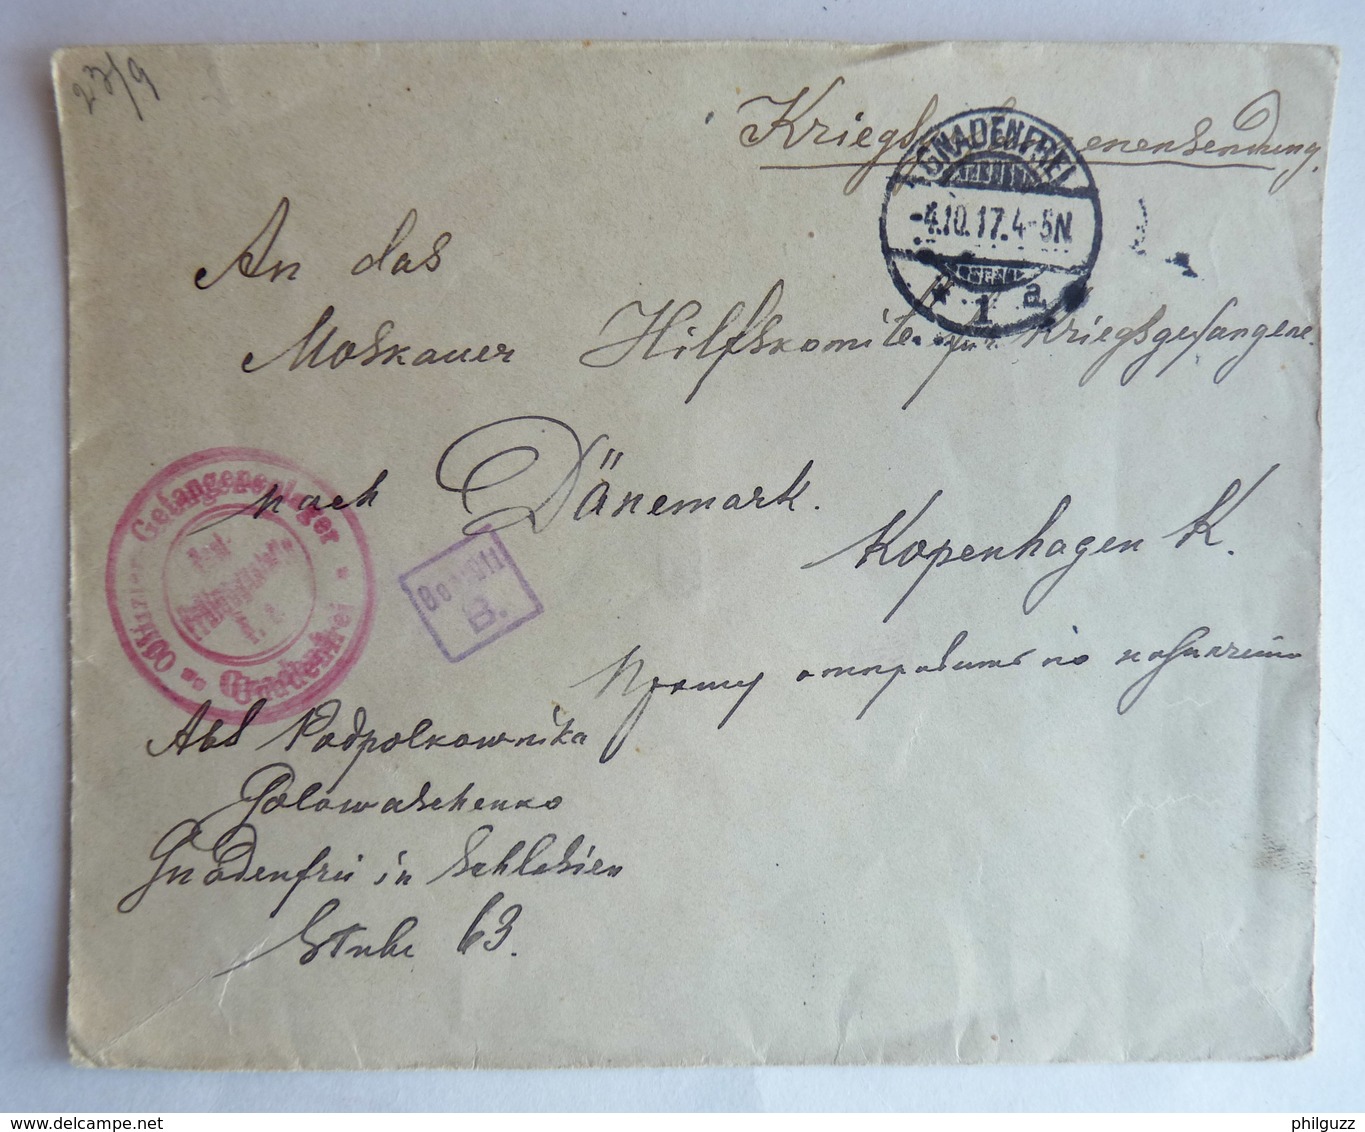 23/9
Kriegsgefangenensendung.
GNADENFREI
-4.10.17.4-5N.
* 1 a
An das
Moskauer Hilfskomite für Kriegsgefangene.
nach Dänemark.
Kopenhagen K.
Offizier-Gefangenenlager
Gnadenfrei
B.
Прошу отправить по назначению
Abs Podpolkownika
Golowaschenko
Gnadenfrei in Schlesien
Stube 63.
philguzz